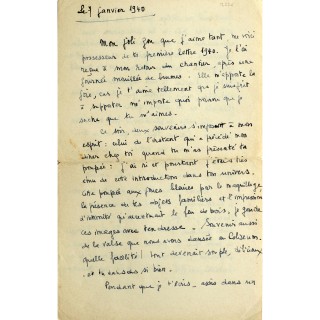 Le 7 janvier 1940
Mon joli Zon que j'aime tant, me voici
possesseur de ta première lettre 1940. Je l'ai
reçue à mon retour du chantier, après une
journée mouillée de brumes. Elle m'apporte la
joie, car je t'aime tellement que je
à supporter n'importe quoi pourvu que je
sache que tu m'aimes.
Ce soir, deux souvenirs s'imposent à mon
esprit : celui de l'instant qui a précédé mon
dîner chez toi quand tu m'as présenté ta
poupée : j'ai ri et pourtant j'étais très
ému de cette introduction dans ton univers.
Une poupée aux joues par le maquillage
la présence de tes objets familiers et l'impression
d'intimité qu'accentuait le feu de bois, je garde
ces images avec tendresse. Souvenir aussi
de la valse que nous avons dansée au Coliseum.
quelle facilité ! tout devenait souple, délicieux
et tu dansais si bien.
Pendant que je t'écris, assis dans un